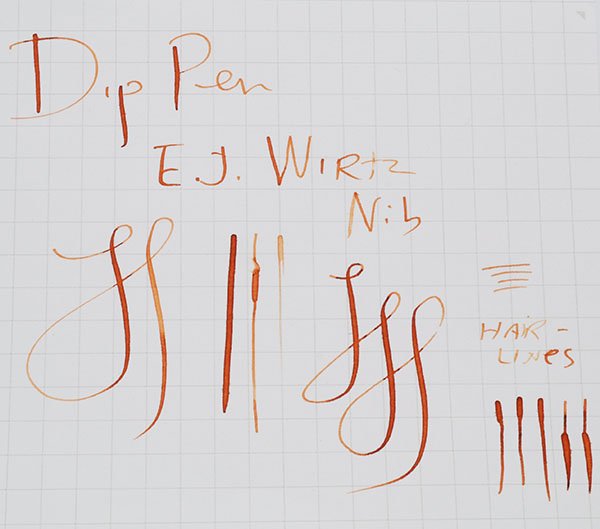 Dip Pen
E.J. Wirtz
Nib
HAIR-
LINES